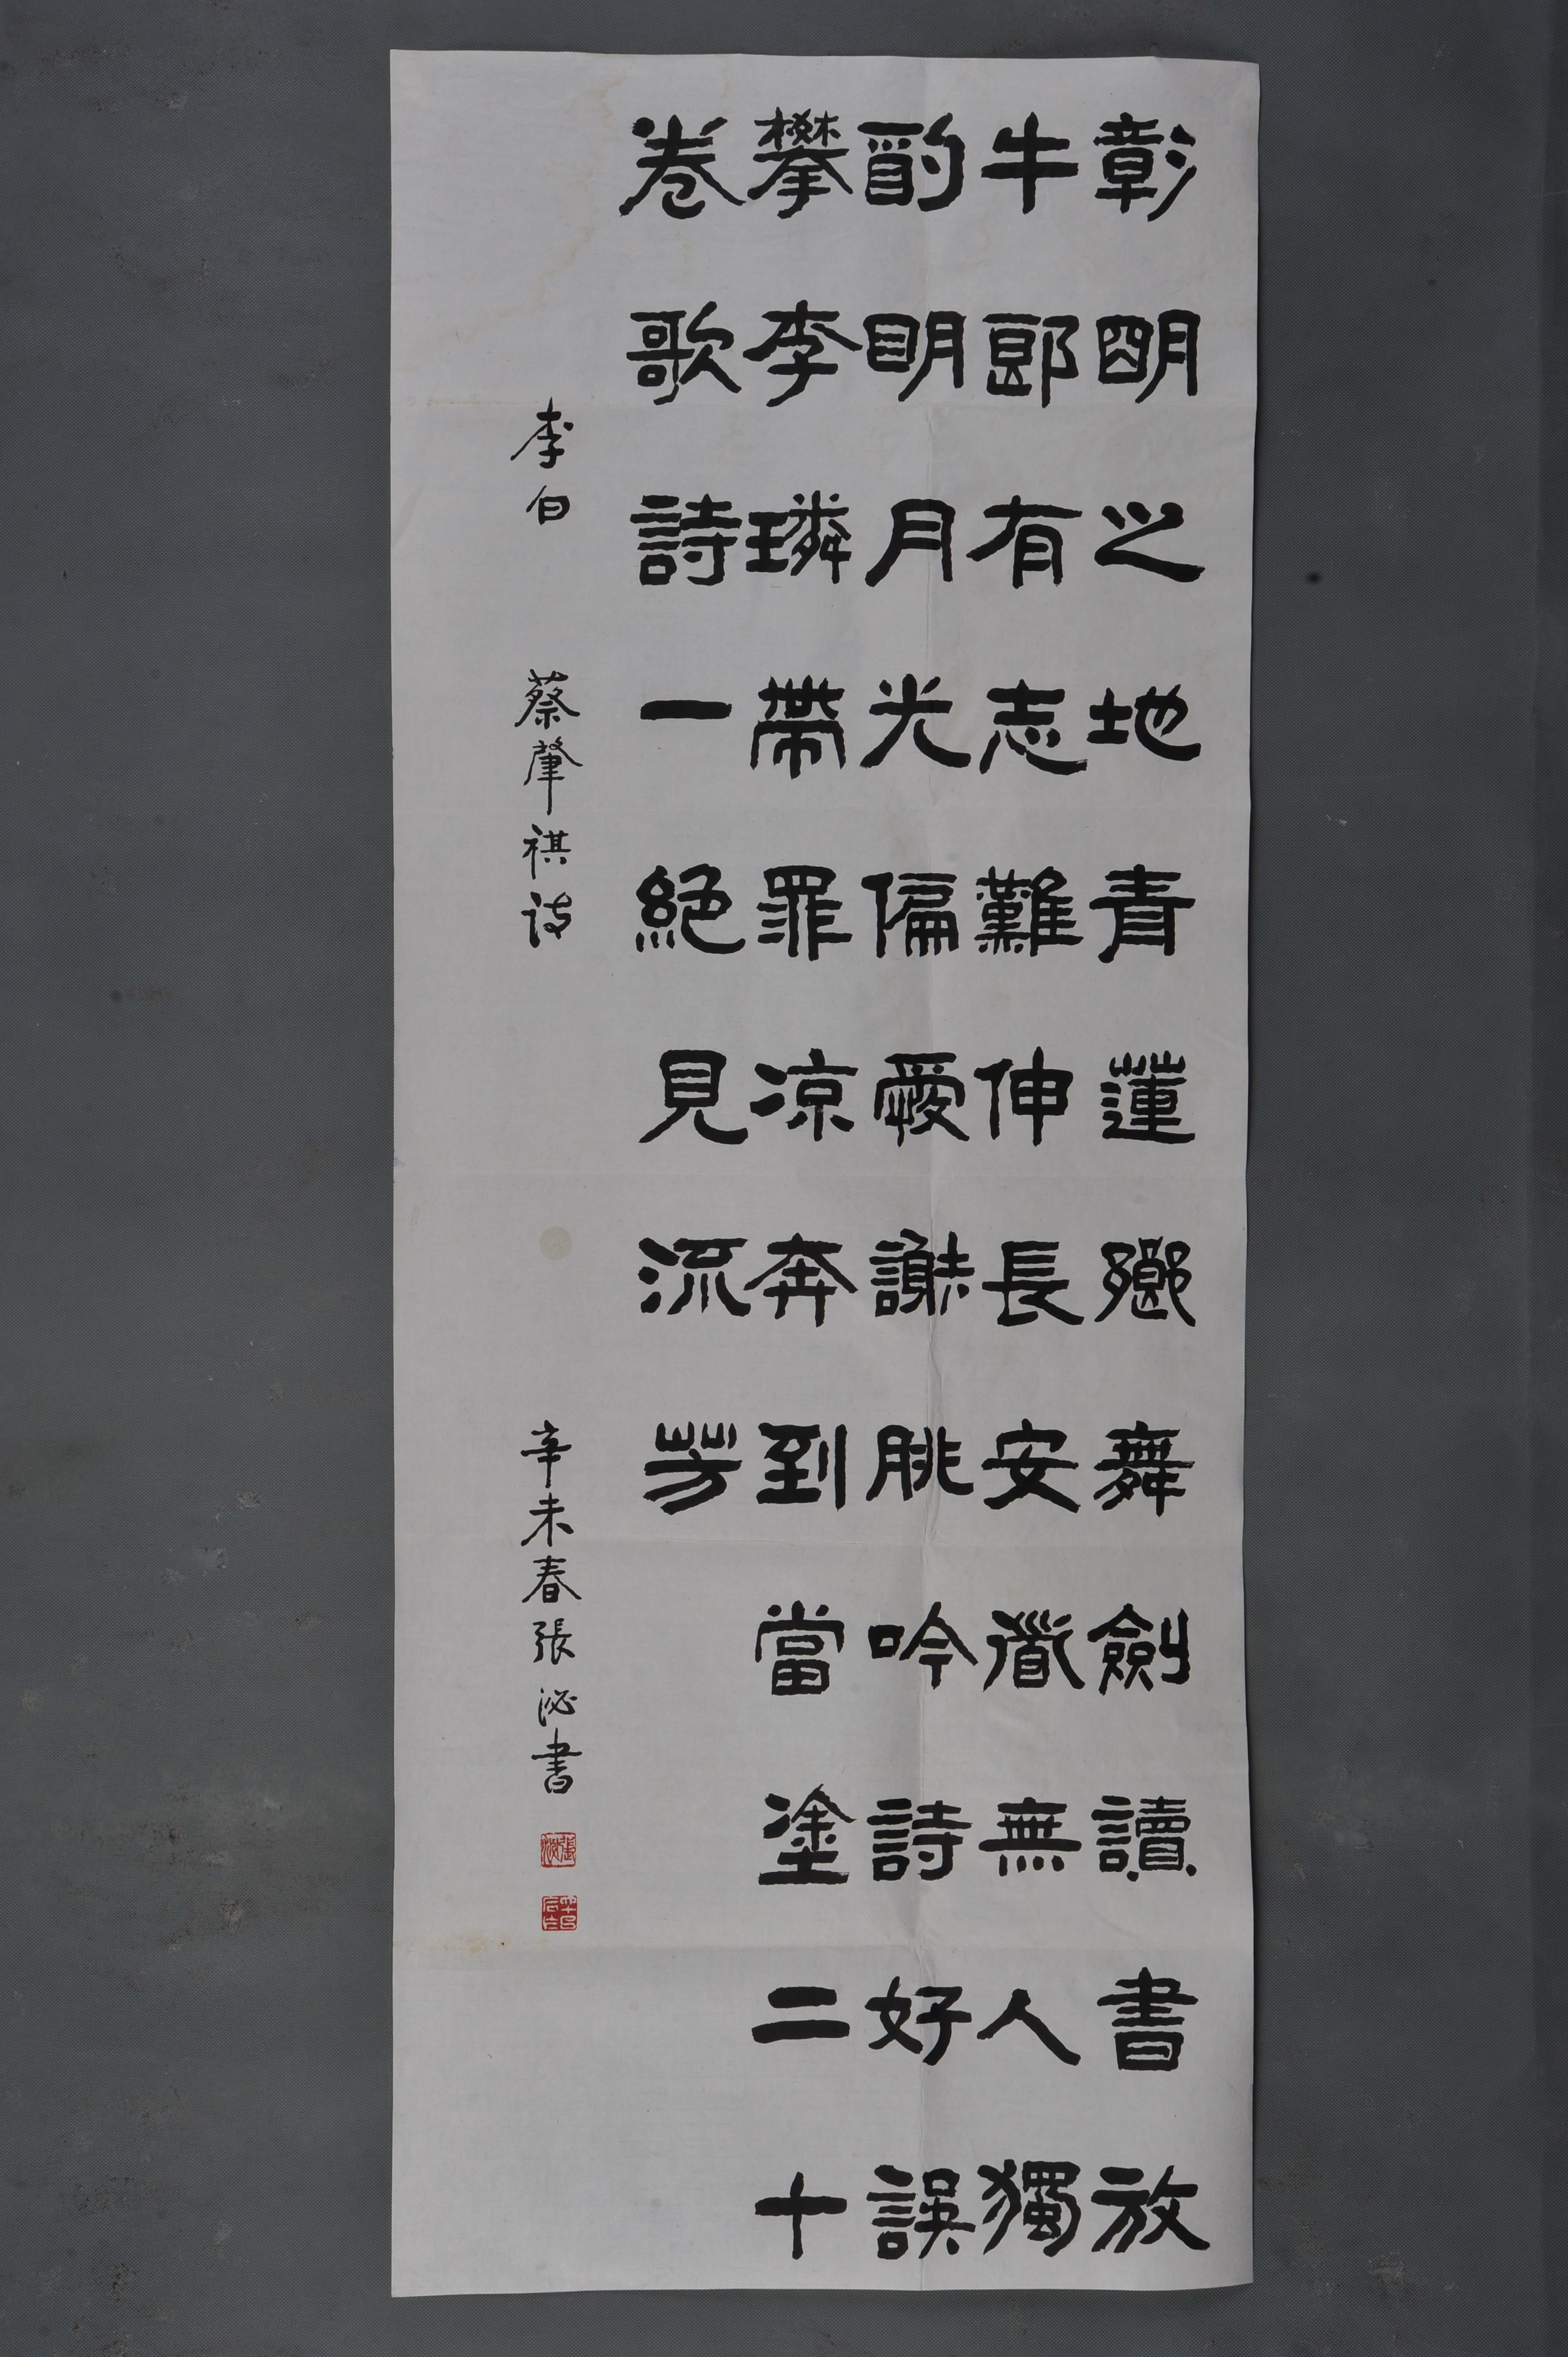 彰明之地青蓮鄉舞劍讀書放
牛郎有志難伸長安道無人獨
酌明月光偏愛謝朓吟詩好誤
攀李璘帶罪凉奔到當塗二十
卷歌詩一絕見流芳
李白
蔡肇祺詩
辛未春張泌書